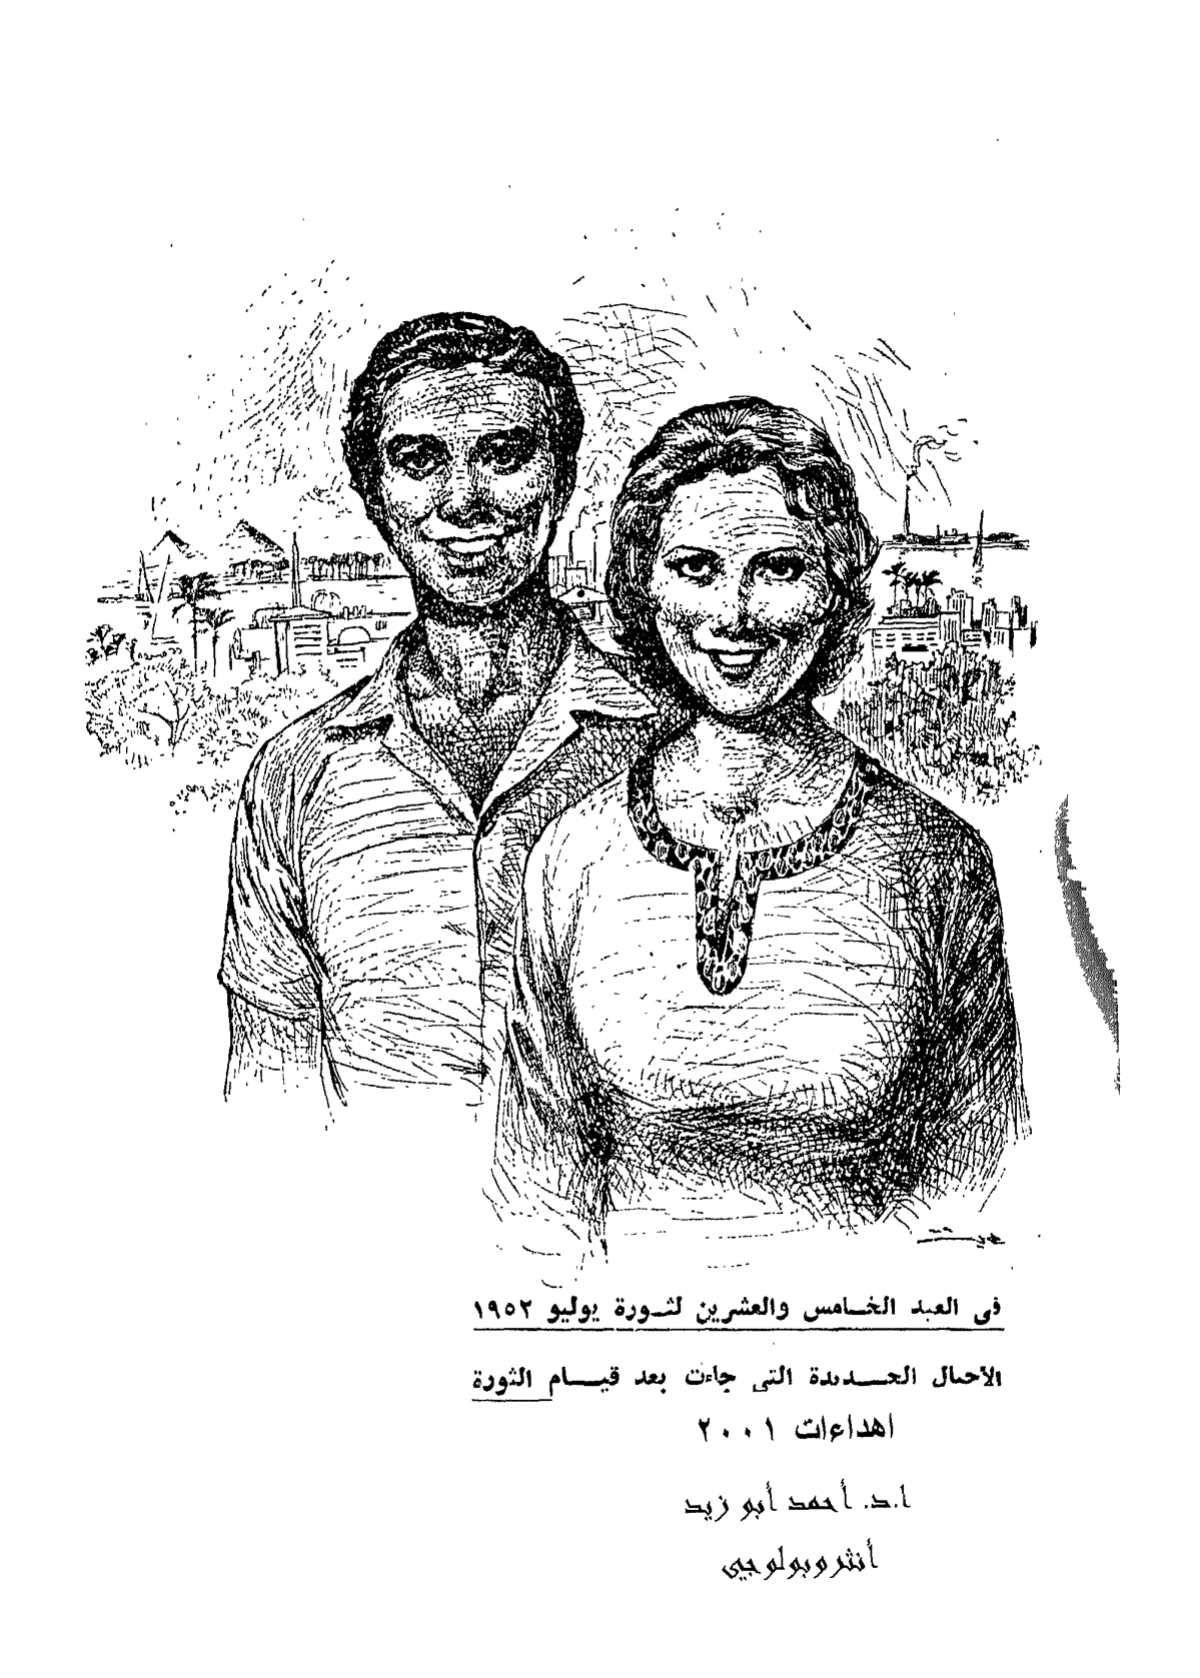 فى العيد الخامس والعشرين لثورة يوليو ١٩٥٢
الأجيال الجديدة التى جاءت بعد قيام الثورة
اهداءات ٢٠٠١
ا.د. أحمد أبو زيد
أنثروبولوجي